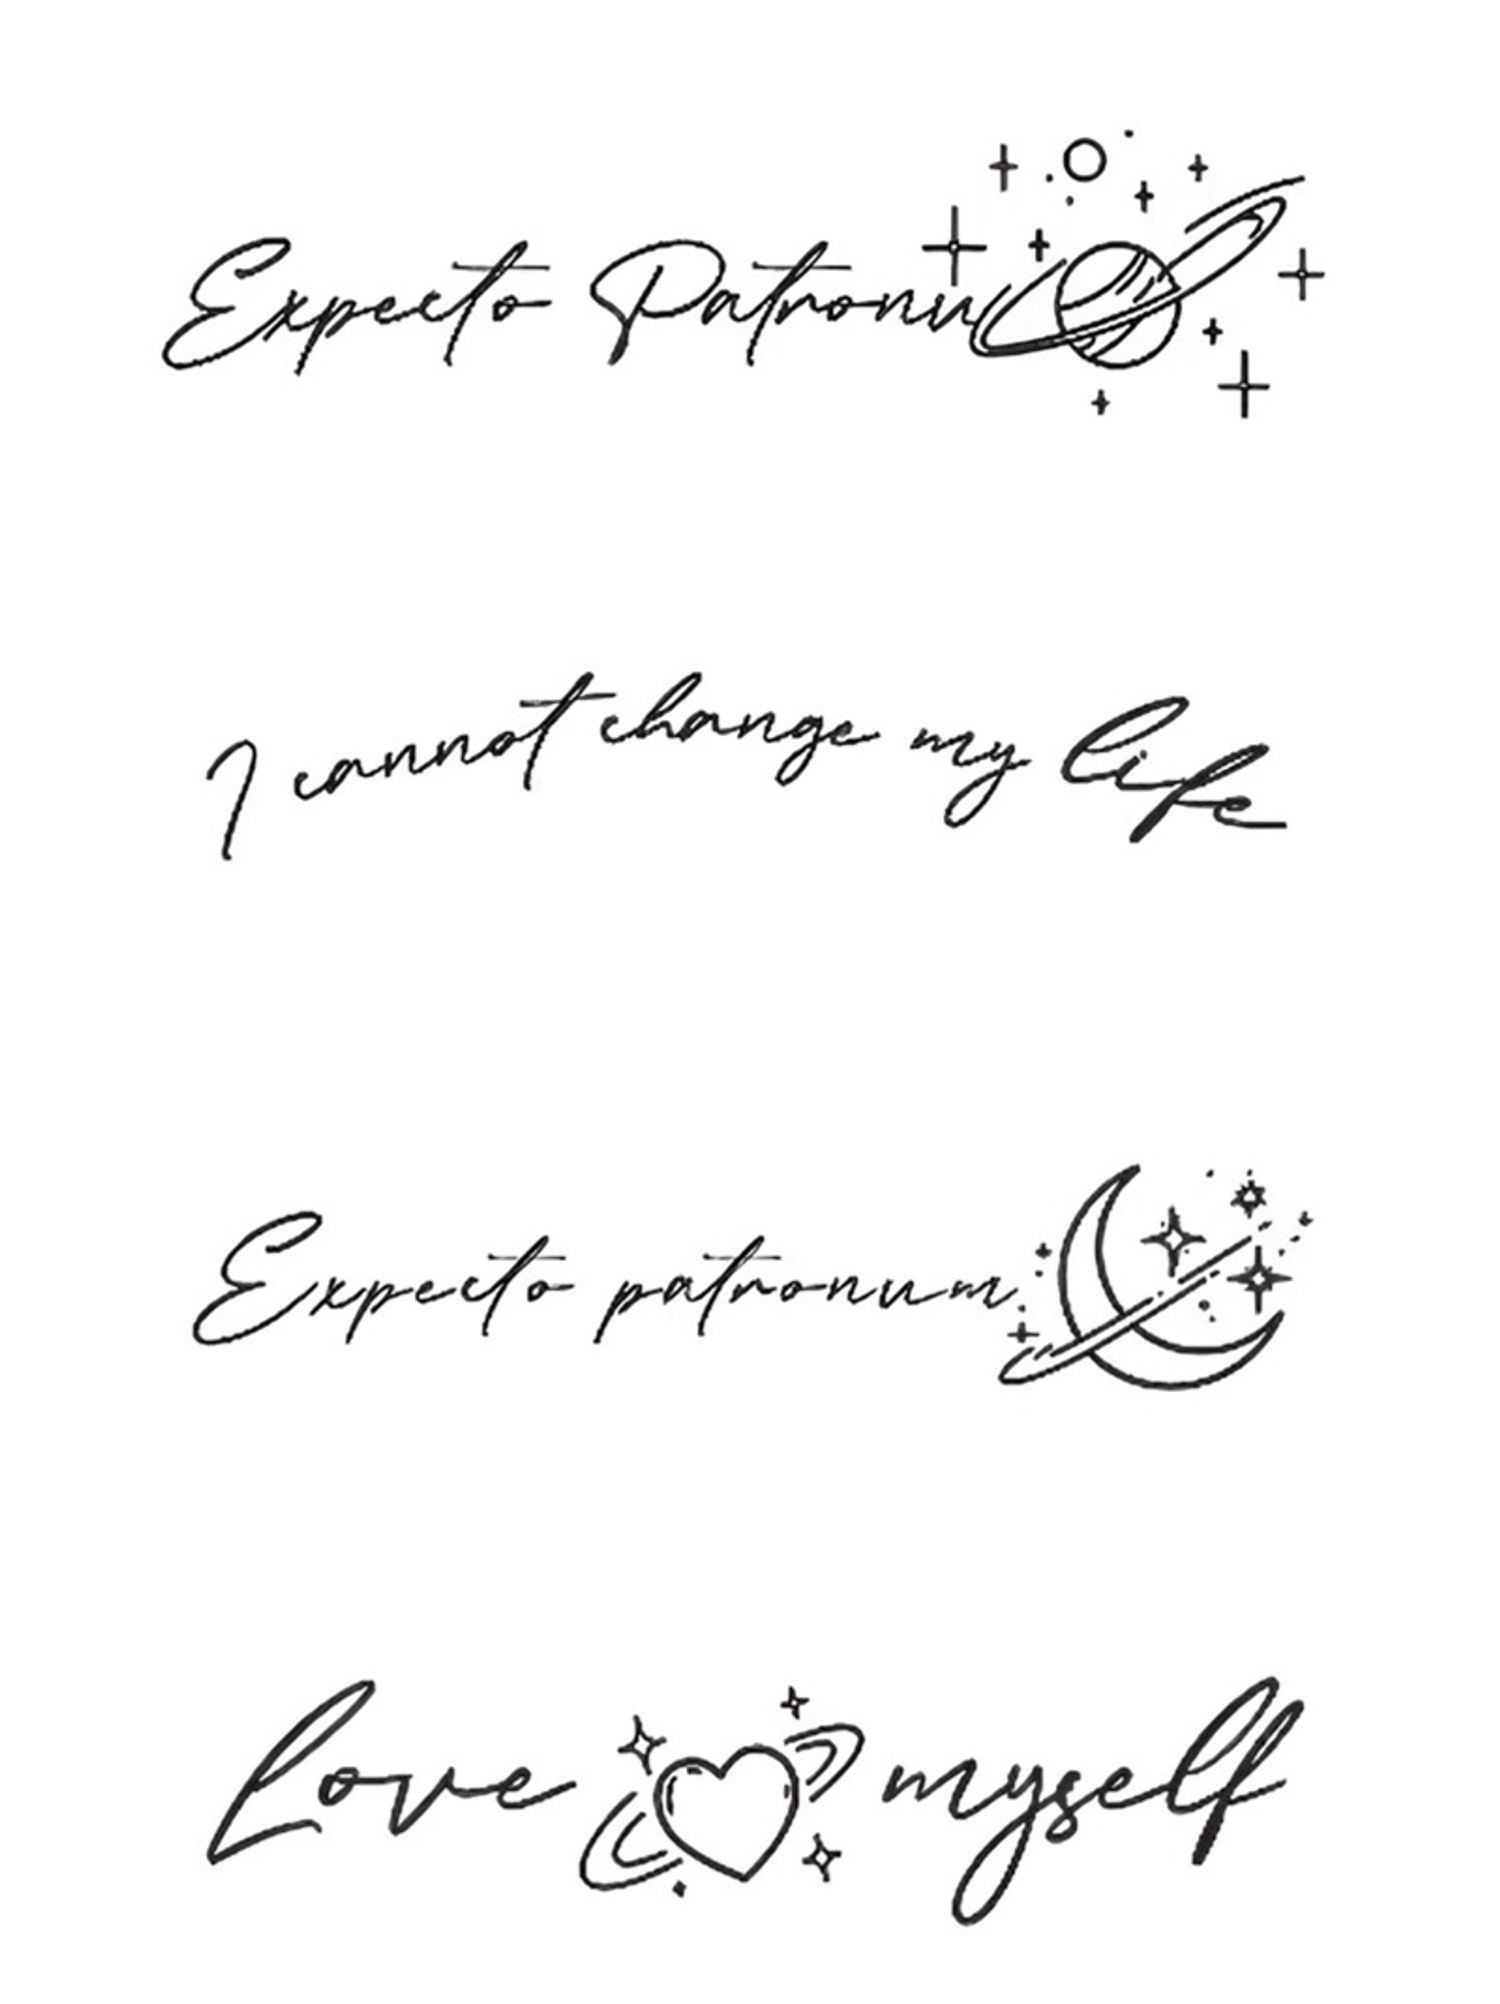 Expecto Patronu
I cannot change my life
Expecto patronum
Love myself